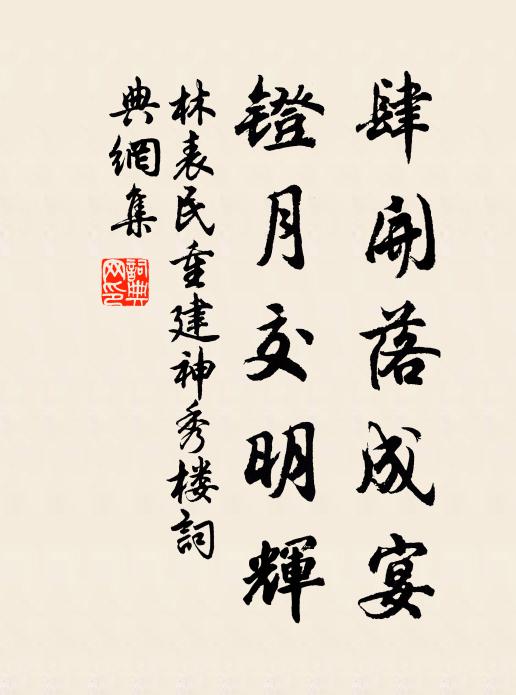 肆開落成宴
鐙月交明輝
林表民重建神秀楼詞
典網集
詞典網印